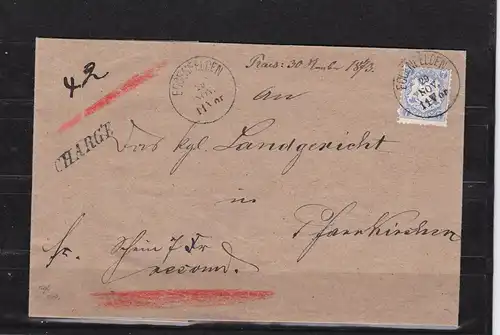 42
EGGENFELDEN
29
NOV.
11 Vor
Praes: 30 November 1873.
EGGENFELDEN
29
NOV.
11 Vor
An
CHARGÉ
Das kgl. Landgericht
in
Pfarrkirchen
fr. Schein 7 Kr
recomd.